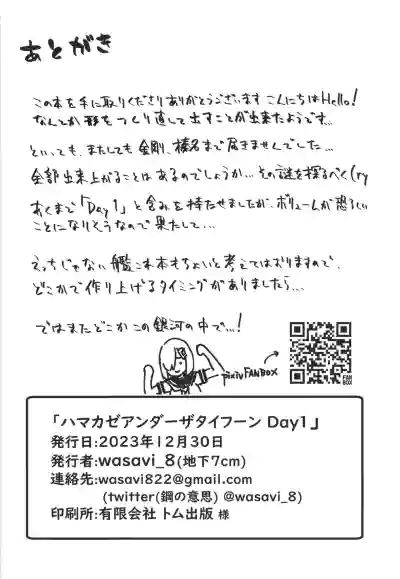 あとがき
この本を手に取りくださりありがとうございます こんにちはHello!
なんとか形をつくり直して出すことが出来たようです…
といっても、またしても金剛、榛名まで届きませんでした…
全部出来上がることはあるのでしょうか…その謎を探るべく(ry
あくまで「Day1」と含みを持たせましたが、ボリュームが恐ろしい
ことになりそうなので果たして…
えっちじゃない艦これ本もちょいと考えてはおりますので、
どこかで作り上げるタイミングがありましたら…
ではまたどこかこの銀河の中で…!
pixivFANBOX
FAN
BOX
「ハマカゼアンダーザタイフーン Day1」
発行日:2023年12月30日
発行者:wasavi_8(地下7cm)
連絡先:wasavi822@gmail.com
(twitter(鋼の意思) @wasavi_8)
印刷所:有限会社 トム出版 様